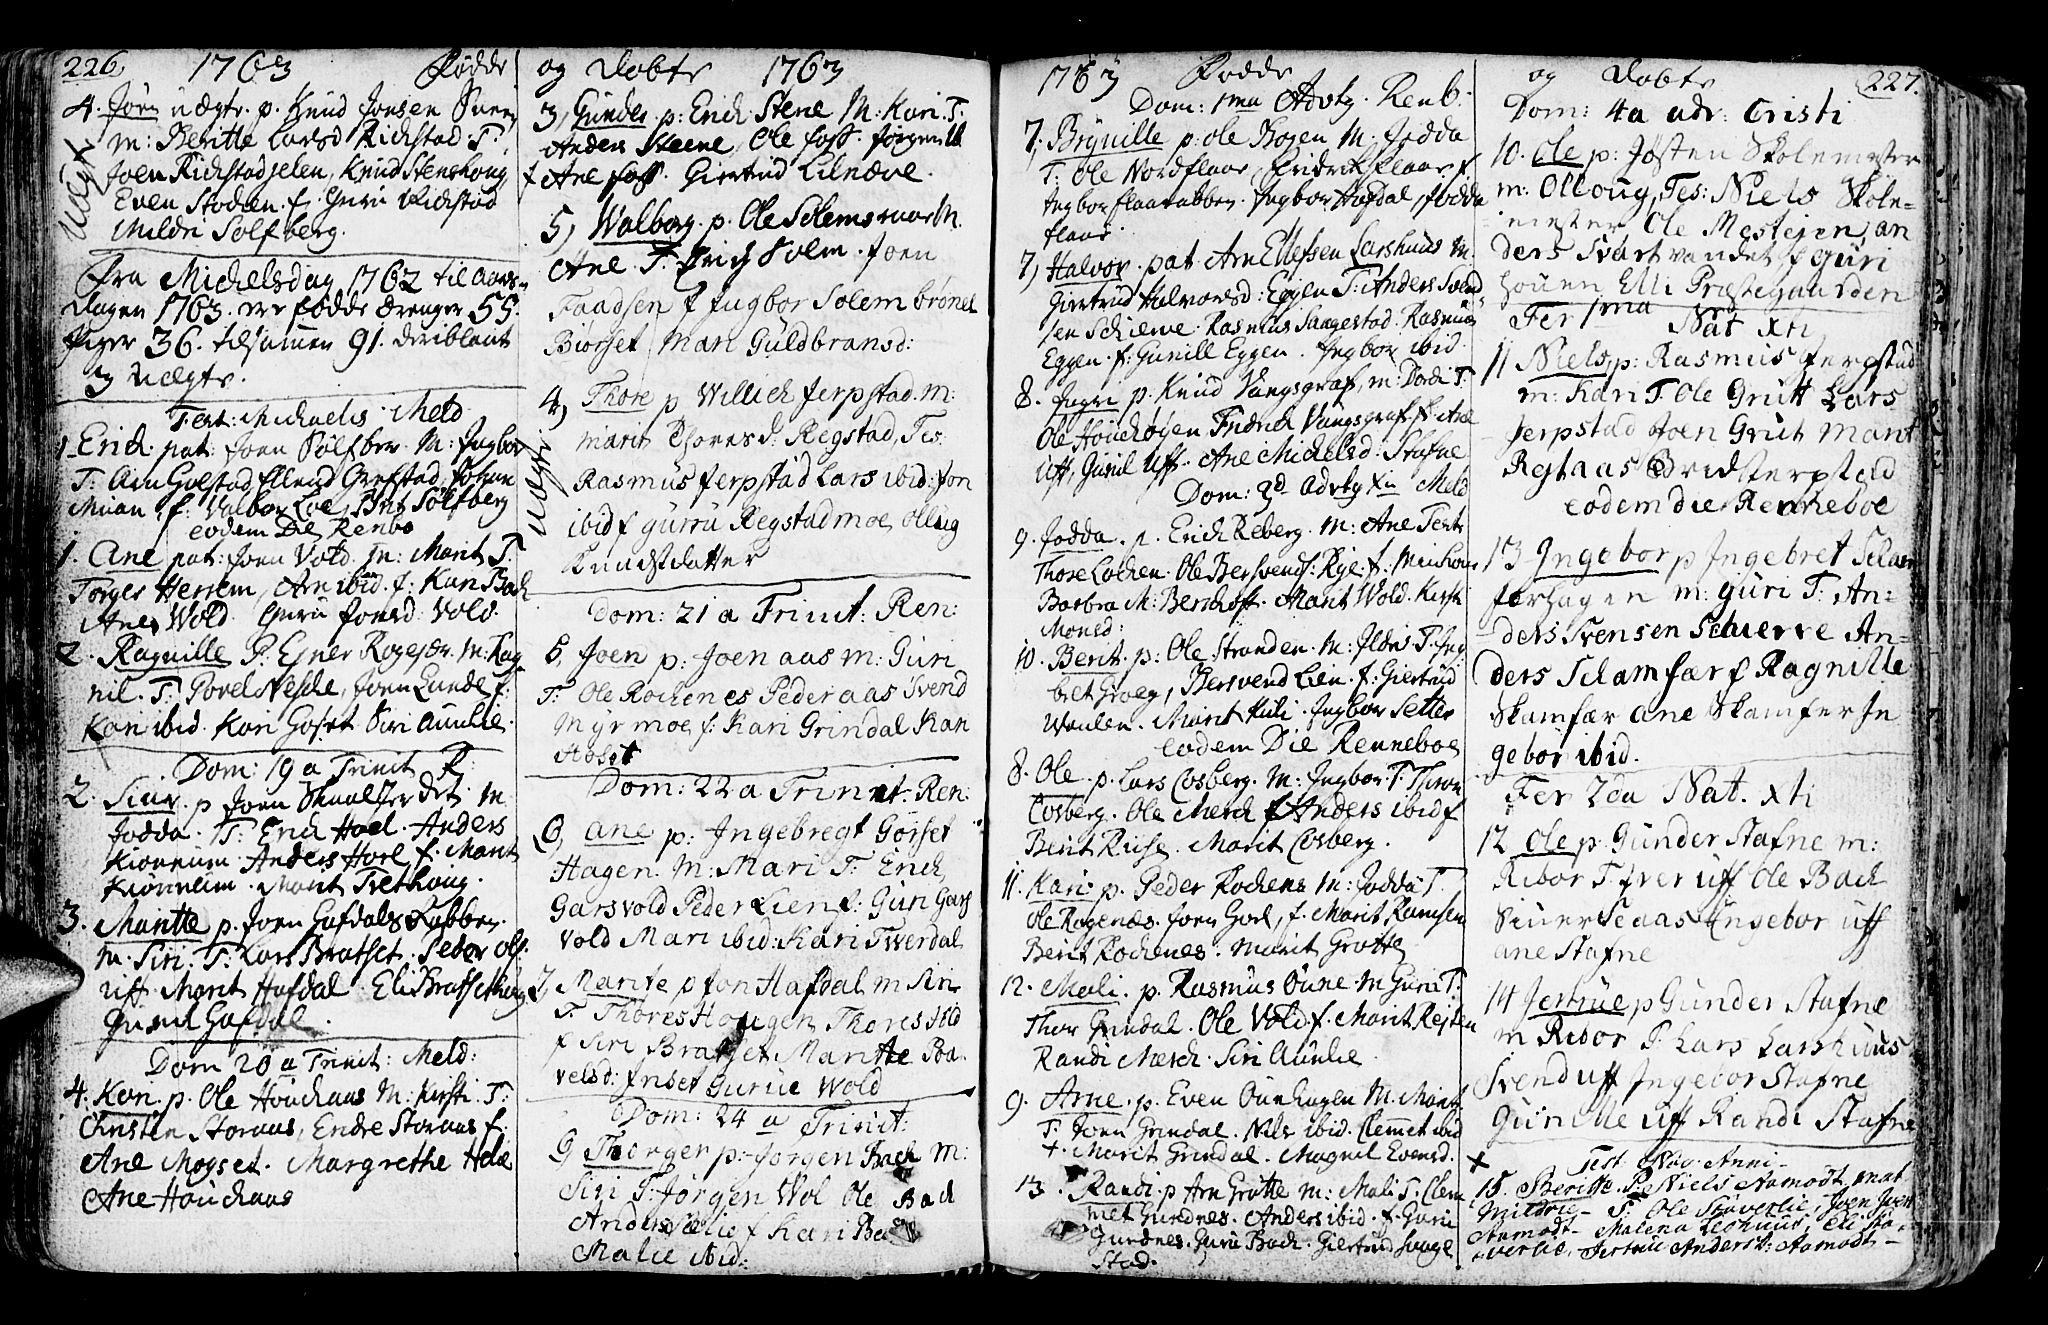 226. 1763 Fødde
4. Jørn uægte. p. Knud Jonsen
m: Beritte Larsd Rickstad T.
Joen Rickstadjelen, Knud Stenshoug
Even Stodien. f. Guru Rickstad
Mildri Solfberg.
Uægte
Fra Michelsdag 1762 til aars-
dagen 1763. ere fødde drenger 55.
Piger 36. tilsammen 91. deriblant
3 Uægte.
Fest: Michaelis Meld
1. Erich. pat: Joen Sølfber M: Ingbor
T. Arn Golstad Ellend Grefstad, Johan
Muan f: Valbor Loe, Brit Sølfberg
eodem Die Renbo
1. Ane pat: Joen Vold. m: Marit T.
Torger Herrem, Arn ibid. f. Kari Bach
Anes Wold Guru Jonsd. Vold.
2. Ragnille P. Ejner M: Rag-
nil. T. Povel Nesche, Joen Lunde f:
Kari ibid. Kari Gorset Siri Aunlie.
Dom: 19 a Trinit R:
2. Siur. p Joen det. M
Jodda. T: Erich Hoel. Anders
Kiønnim. Anders Hoel f. Marit
Kiønnim. Marit Trethoug.
3. Maritte p. Joen Hafdals
m. Siri. T. Lars Bratset. Peder Ols.
Uff. Marit Hafdal Eli Bratsethoug
Guru Hafdal.
Dom 20 a Trinit: Meld:
4. Kari. p. Ole Houchaas M: Kirsti. T:
Christen Storaas, Endre Storaas f:
Ane Mogset. Margrethe Hole
Ane Houchaas
og Døbte 1763
3, Gunder. p: Erich Stene M: Kari. T.
Anders Steene, Ole foss. Jørgen ibid
f Ane foss. Giertrud Lilnæve.
5, Walborg. p. Ole Solemsmoe M.
Ane T: Erich Solem. Joen
Faadsen f Ingbor Solem brønet
Biørset Mari Guldbransd:
4, Thore p Willich Jerpstad. m:
marit Thoresd: Regstad, Tes:
Rasmus Jerpstad Lars ibid: Jon
ibid f gurru Regstad moe, Ollug
Knudsdatter
Uægte
Dom: 21 a Trinit: Ren:
5, Joen p: Joen aas m: Guri
T: Ole Rochenes Peder aas Svend
Myrmoe f: Kari Grindal Kari
Hoset
Dom: 22 a Trinit: Ren:
6, ane p: Ingebregt Gorset
Hagen. M: Mari T: Erich
Garsvold Peder Lien f: Guri Gars
vold Mari ibid: Kari Twerdal
7, Marite p Jon Hafdal m Siri
T: Thores Hougen Thores Vold
f Siri Bratset Maritte Poa-
velsd: Inset Gurue Wold
Dom: 24 a Trinit:
9 Thorger p: Jørgen Bach m:
Siri T: Jørgen Wol Ole Bach
Anders Melie f Kari Ba
Malie ibid:
1763 Fødde
Dom: 1ma Advtg. Renb:
7, Brynille p: Ole Hogen M. Jodda
T. Ole Nordflaae, Fridrik Flaae f.
Ingbor Flaarabben. Ingbor Hafdal, Jodda
Flaae.
7, Halvor. pat Arn Ellefsen Larshuus M.
Giertrud Halvorsd: Eggen T: Anders Svend
sen Schierve. Rasmus Saugestad. Rasmus
Eggen. f: Gunill Eggen. Ingbor ibid.
8. Ingri p. Knud Vangsgraf, m: Dordi T.
Ole Houchøgen Fridrich Vangsgraf. f. Ane
Uff, Gunil Uff. Ane Michelsd. Stafne
Dom: 3d Advtg Xti Meld
9. Jodda. p. Erich Reberg. M: Ane Test
Thore Lochen. Ole Bersvends: Rye: f.
Barbra M: Berchoft. Marit Wold. Kirsti
Moned:
10. Berit. p: Ole Stranden. M: Ildri T. Ing
bret Groeg, Bersvend Lien. f: Giertrud
Waulen. Marit Kuli. Ingbor Setter
eodem Die Renneboe
8. Ole. p. Lars Cosberg. M: Ingbor T. Thron
Cosberg. Ole Merch f Anders ibid f
Berit Riise. Marit Cosberg.
11. Kari. p. Peder Rochens M: Jodda T.
Ole Ragenæs. Joen Gorl, f. Marit Ramsem
Berit Rochenes. Marit Grotte
12. Mali. p. Rasmus Øüne M Guri T.
Thor Grindal. Ole Vold f. Marit Rejten
Randi Mersch. Siri Aunlie.
9. Arne. p. Even Øunhagen M. Marit
T. Joen Grindal. Nils ibid. Clemet ibid
f. Marit Grindal. Magnil Evensd.
13. Randi. p Arn Grøtte m: Mali T. Clem
met Gundnes. Anders ibid. f. Guru
Gundnes. Guru Bach. Giertrud Sauge
stad.
og Døbte 227.
Dom: 4a adv: Cristi
10. Ole p: Josten Skolemester
m. Olloug, Tes: Niels Skole-
mester Ole Mestejen, an
ders Svartvandet f guri
houen Elli Præstegaarden
Fer 1ma Nat xti
11 Niels p: Rasmus Jerpstad
m: Kari T. Ole Grutt Lars
Jerpstad Joen Grut Marit
Rejtaas Bridt Jerpstad
eodem die Renneboe
13 Ingebor p Ingebret
farhagen m: Guri T: An-
ders Svensen Schierve An-
ders Sclamfær f Ragnille
Skamfær ane Skamfer In
gebor ibid.
Fer 2da Nat. xti
12 Ole p. Gunder Stafne m:
Ribor T Iver uff Ole Bach
Siuer Seaas f Ingebor uff
ane Stafne
14 Jertrue p Gunder Stafne
m Ribor T. Lars Larshuus
Svend uff Ingebor Stafne
Gunille uff Randi Stafne
Fest. Nov. Anni
15. Beritte. P. Niels Aamodt, mat
Mildrie. T. Ole Støverlie, Joen Iver
Aamodt. Malena Leohuus, Eli Stø-
verlie, Jertrue Andersd: Aamodt.